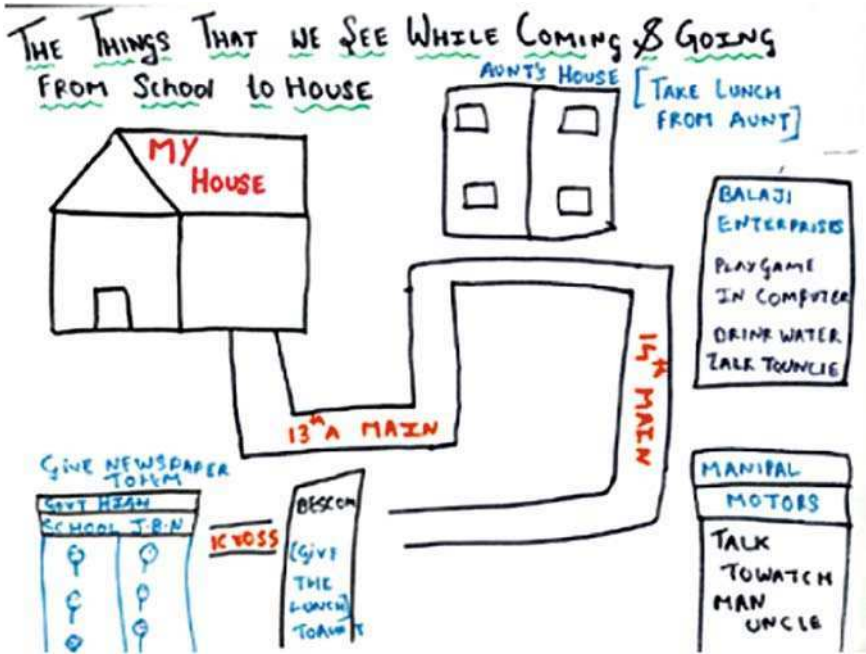 THE THINGS THAT WE SEE WHILE COMING & GOING
FROM SCHOOL to HOUSE
AUNT'S HOUSE
[TAKE LUNCH
FROM AUNT]
MY
HOUSE
BALAJI
ENTERPRISES
PLAYGAME
IN COMPUTER
DRINK WATER
TALK TOUNCLE
14th MAIN
13th A MAIN
GIVE NEWSPAPER
TO HM
GOVT HIGH
SCHOOL J.B.N
1CROSS
BESCOM
[GIVE
THE
LUNCH]
TOAUNT
MANIPAL
MOTORS
TALK
TOWATCH
MAN
UNCLE